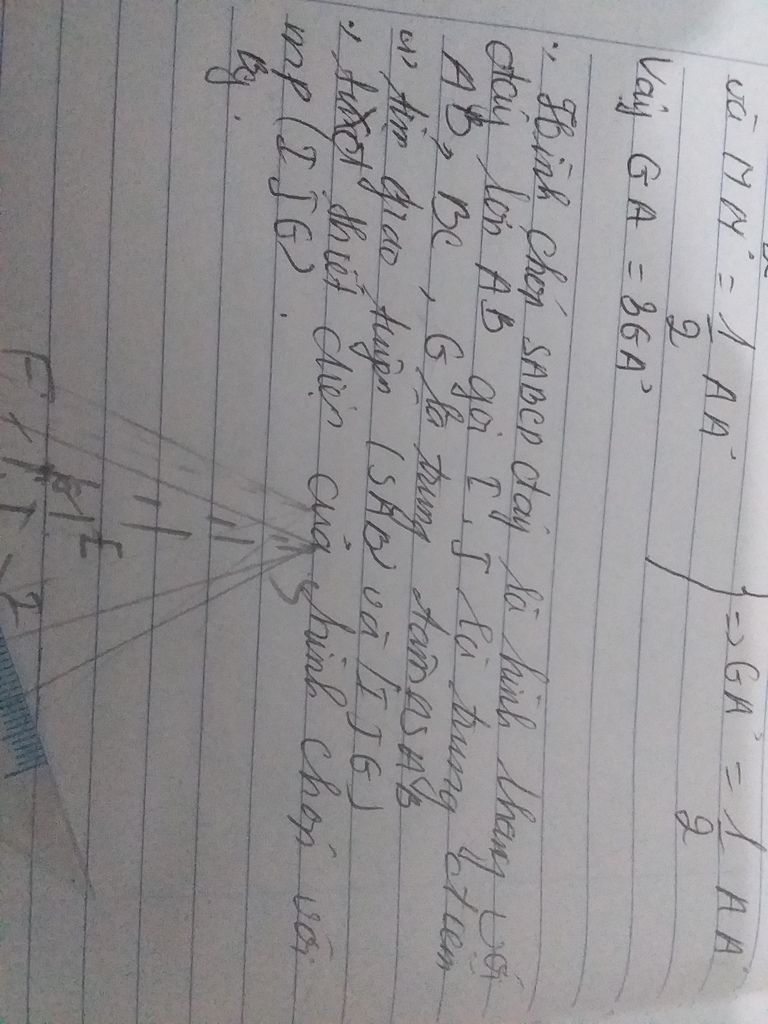 và MN' = 1/2 AA' } => GA' = 1/2 AA'
Vậy GA = 3GA'
Hình chóp SABCD đáy là hình thang với
đáy lớn AB gọi I, J là trung điểm
AB, BC, G là trung tâm ΔSAB
tìm giao tuyến (SAB) và (IJG)
thiết diện của hình chóp với
mp (IJG).
Bg.
S
E
F
J
I